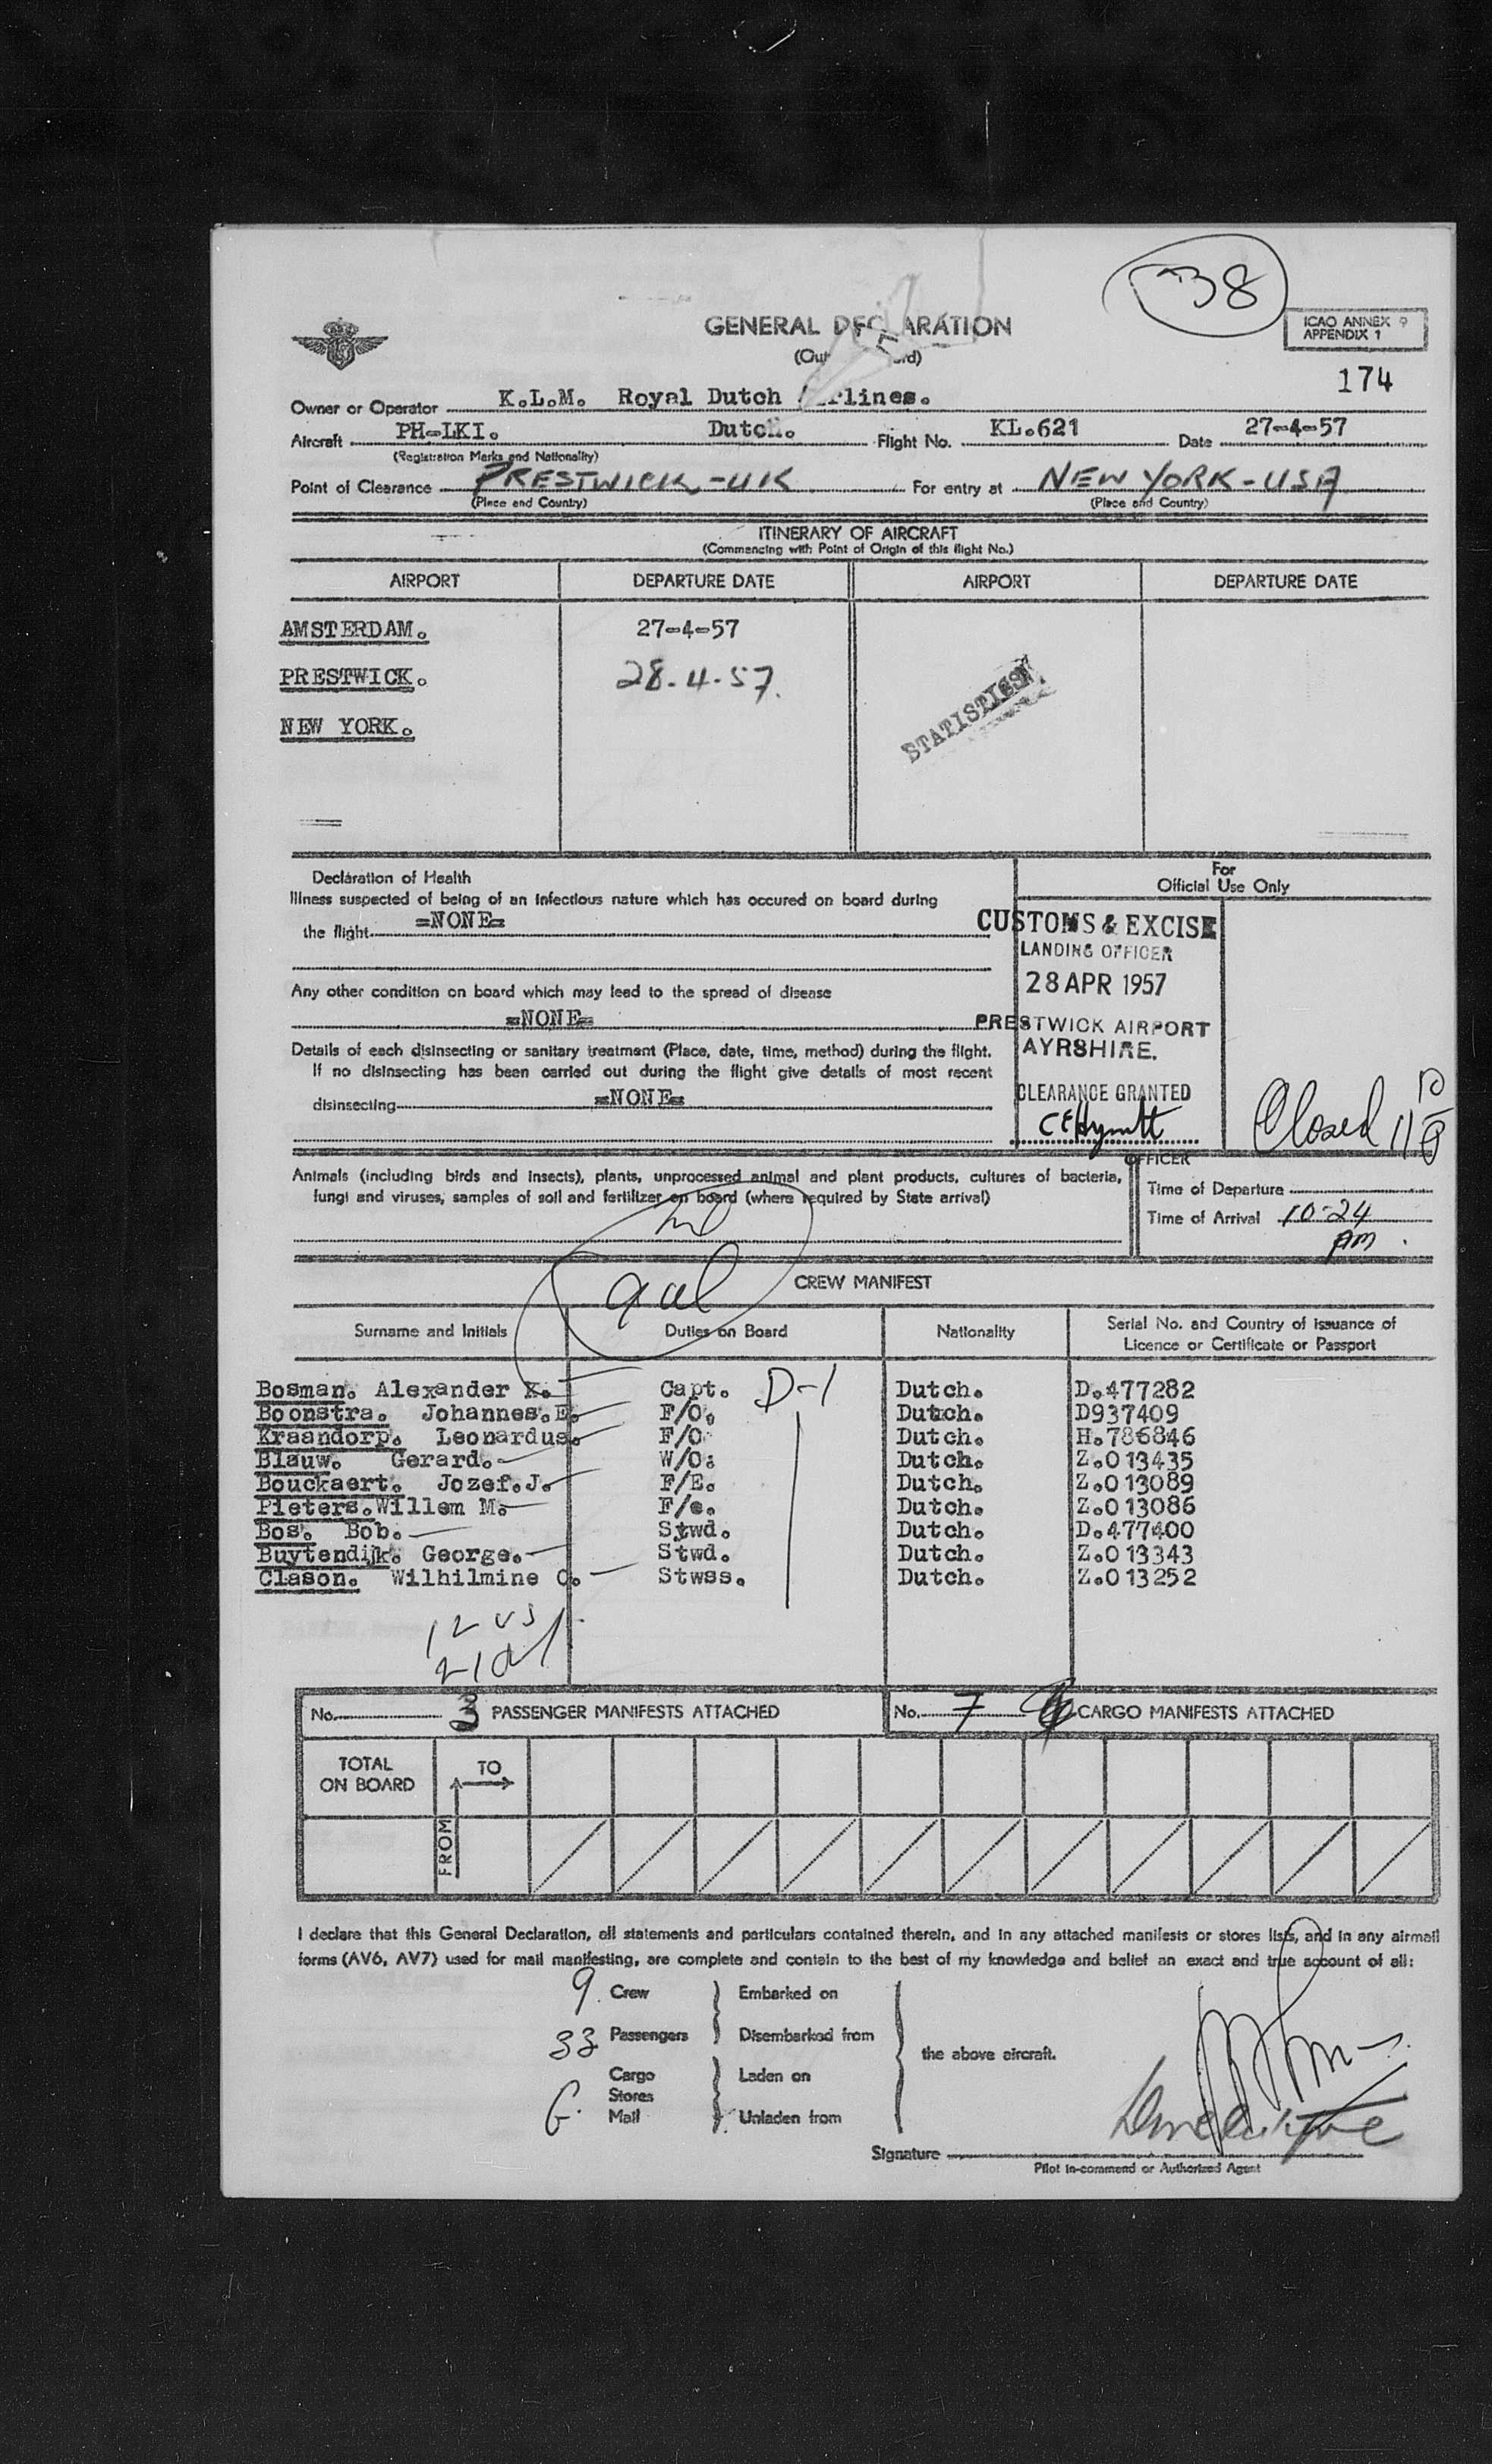 38
GENERAL DECLARATION
ICAO ANNEX 9
APPENDIX 1
174
Owner or Operator K.L.M. Royal Dutch Airlines.
Aircraft PH-LKI. Dutch. Flight No. KL.621 Date 27-4-57
(Registration Marks and Nationality)
Point of Clearance PRESTWICK.-UK For entry at NEW YORK-USA
(Place and Country) (Place and Country)
ITINERARY OF AIRCRAFT
(Commencing with Point of Origin of this flight No.)
AIRPORT DEPARTURE DATE AIRPORT DEPARTURE DATE
AMSTERDAM. 27-4-57
PRESTWICK. 28-4-57.
NEW YORK.
STATISTICS
Declaration of Health
Illness suspected of being of an infectious nature which has occured on board during
the flight =NONE=
Any other condition on board which may lead to the spread of disease
=NONE=
Details of each disinsecting or sanitary treatment (Place, date, time, method) during the flight.
If no disinsecting has been carried out during the flight give details of most recent
disinsecting =NONE=
For
Official Use Only
CUSTOMS & EXCISE
LANDING OFFICER
28 APR 1957
PRESTWICK AIRPORT
AYRSHIRE.
CLEARANCE GRANTED
OFFICER
Closed
Animals (including birds and insects), plants, unprocessed animal and plant products, cultures of bacteria,
fungi and viruses, samples of soil and fertilizer on board (where required by State arrival)
Time of Departure
Time of Arrival 10-24
AM.
CREW MANIFEST
Surname and Initials Duties on Board Nationality Serial No. and Country of issuance of
Licence or Certificate or Passport
Bosman. Alexander K. Capt. D-1 Dutch. D.477282
Boonstra. Johannes.E. F/O. Dutch. D937409
Kraandorp. Leonardus. F/O Dutch. H.786846
Blauw. Gerard. W/O. Dutch. Z.013435
Bouckaert. Jozef.J. F/E. Dutch. Z.013089
Pieters.Willem M. F/e. Dutch. Z.013086
Bos. Bob. Stwd. Dutch. D.477400
Buytendijk. George. Stwd. Dutch. Z.013343
Clason. Wilhilmine C. Stwss. Dutch. Z.013252
12 US
No. 3 PASSENGER MANIFESTS ATTACHED No. 7 CARGO MANIFESTS ATTACHED
TOTAL
ON BOARD
TO
FROM
I declare that this General Declaration, all statements and particulars contained therein, and in any attached manifests or stores lists, and in any airmail
forms (AV6, AV7) used for mail manifesting, are complete and contain to the best of my knowledge and belief an exact and true account of all:
9 Crew Embarked on
33 Passengers Disembarked from
the above aircraft.
Cargo Laden on
Stores
Mail Unladen from
Signature
Pilot in-commend or Authorized Agent